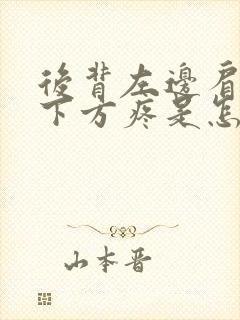 後背左邊肩
下方疼是怎
山本晋